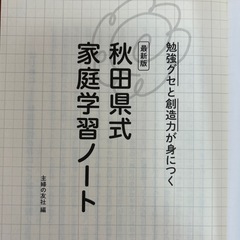 勉強グセと創造力が身につく
最新版
秋田県式
家庭学習ノート
主婦の友社 編